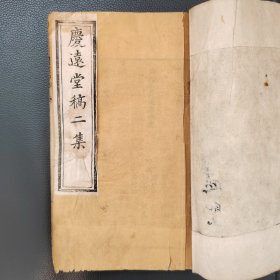 慶遠堂稿二集